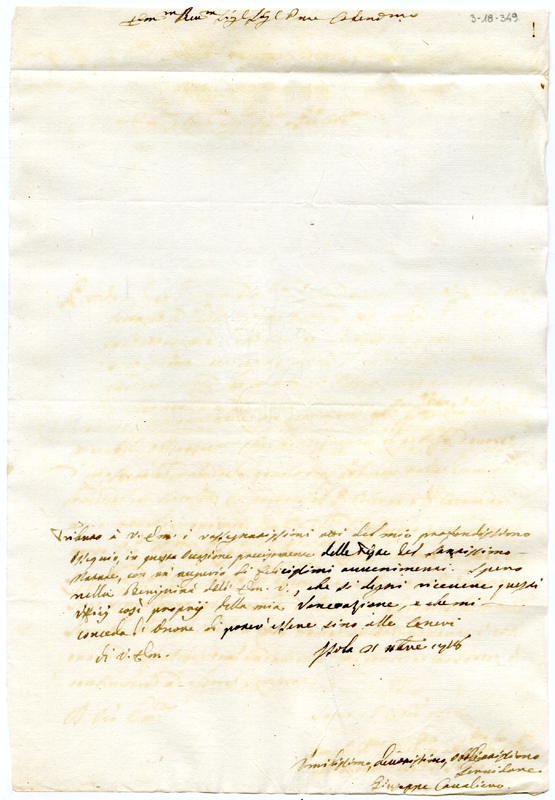 3-18-349
!
Em.mo Rev.mo Sig.r Sig.r Pne Colendmo
Tributo à V. Em. i rassegnatissimi atti del mio profondissimo
Ossequio, in questa Occasione precisamente delle Feste del Santissimo
Natale, con un' augurio di felicissimi avvenimenti. Spero
nella Benignità dell' Em. V., che si degni ricevere questi
Uffizij così proprij della mia Venerazione, e che mi
conceda l' Onore di poter' essere sino alle Ceneri
di V. Em.
Isola 21 1718
Umilissimo, divotissimo, Obbligatissimo
Servidore
Giuseppe Cavaliero